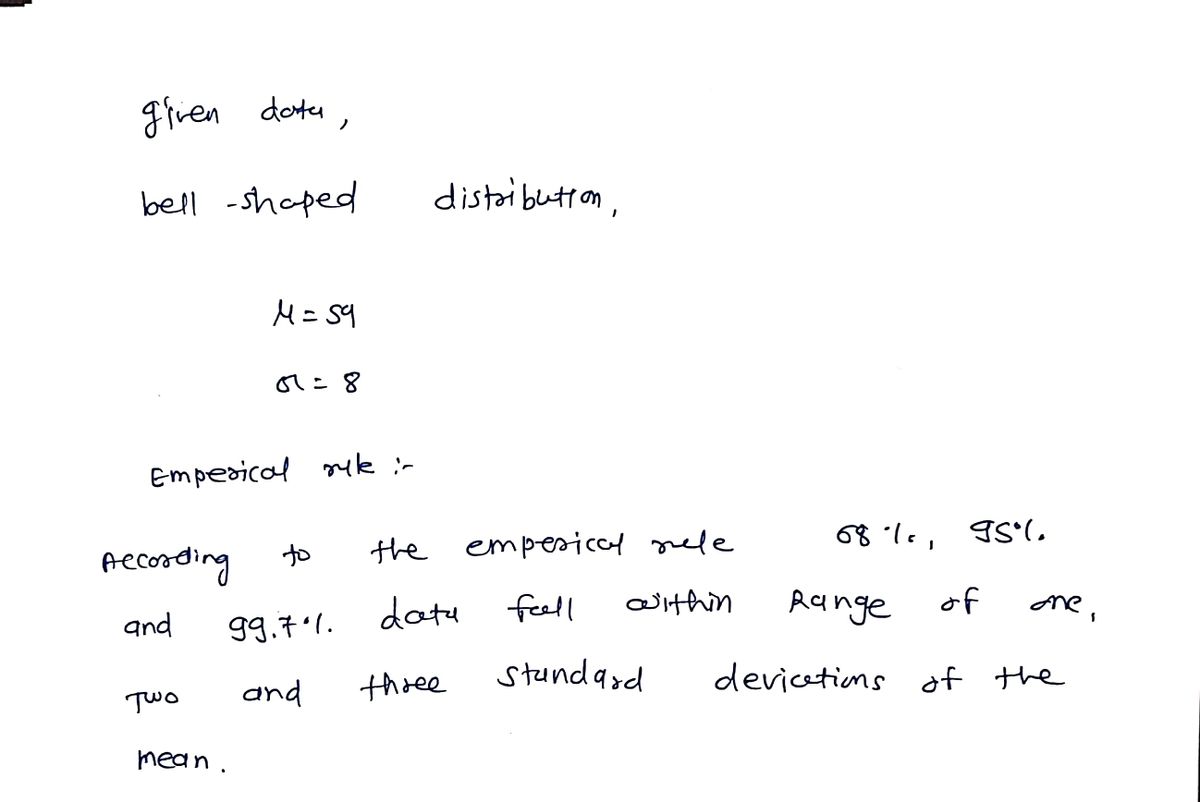 given data,
bell -shaped distribution,
μ = 59
σ = 8
Emperical rule :-
According to the emperical rule 68 %, 95%
and 99.7%. data fall within Range of one,
Two and three standard deviations of the
mean.